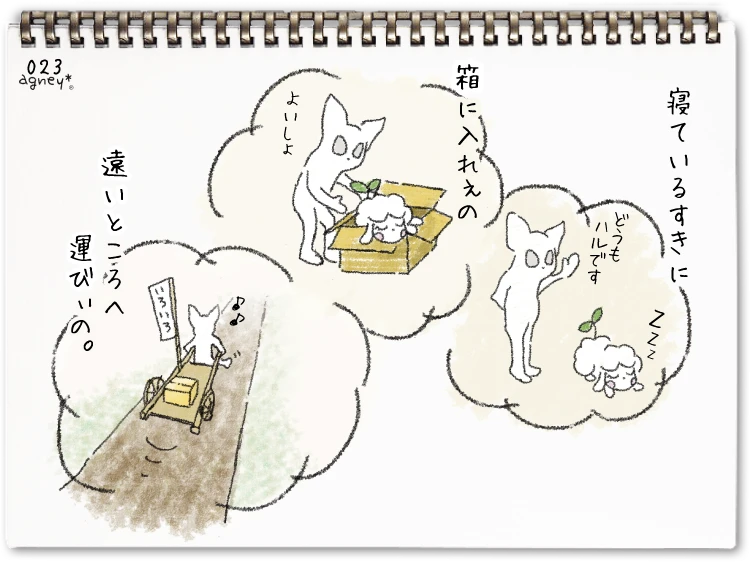 023
agney*©
寝ているすきに
どうも
ハルです
zzz
箱に入れぇの
よいしょ
遠いところへ
運びぃの。
いろいろ